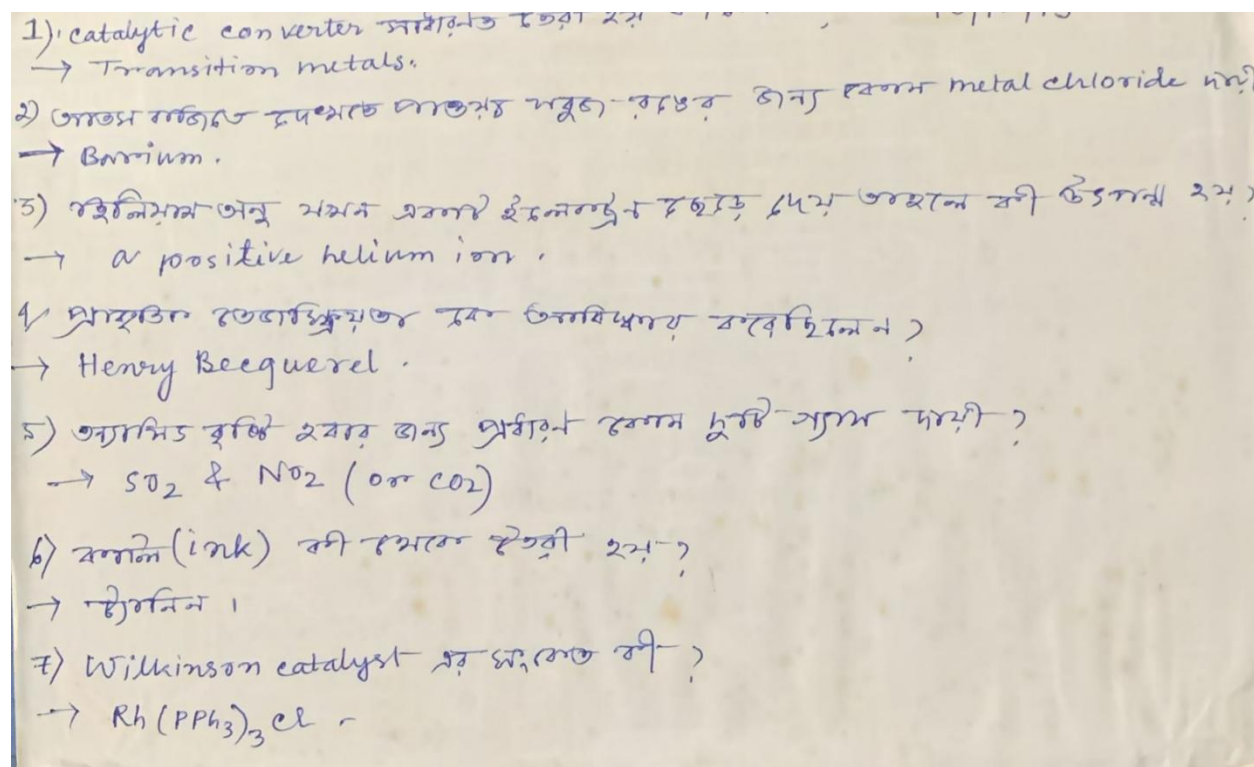 1) catalytic converter সাধারণত তৈরী হয়
→ Transition metals.
2) আতস বাজিতে দেখতে পাওয়া সবুজ রঙের জন্য কোন metal chloride দায়ী
→ Barium.
3) হিলিয়াম অনু যখন একটি ইলেকট্রন ছেড়ে দেয় তাহলে কী উৎপন্ন হয়?
→ a positive helium ion.
4) প্রাকৃতিক তেজস্ক্রিয়তা কে আবিষ্কার করেছিলেন?
→ Henry Becquerel.
5) অ্যাসিড বৃষ্টি হবার জন্য প্রধানত কোন দুটি গ্যাস দায়ী?
→ SO2 & NO2 (or CO2)
6) কালি (ink) কী থেকে তৈরী হয়?
→ ট্যানিন।
7) Wilkinson catalyst এর সংকেত কী?
→ Rh(PPh3)3Cl